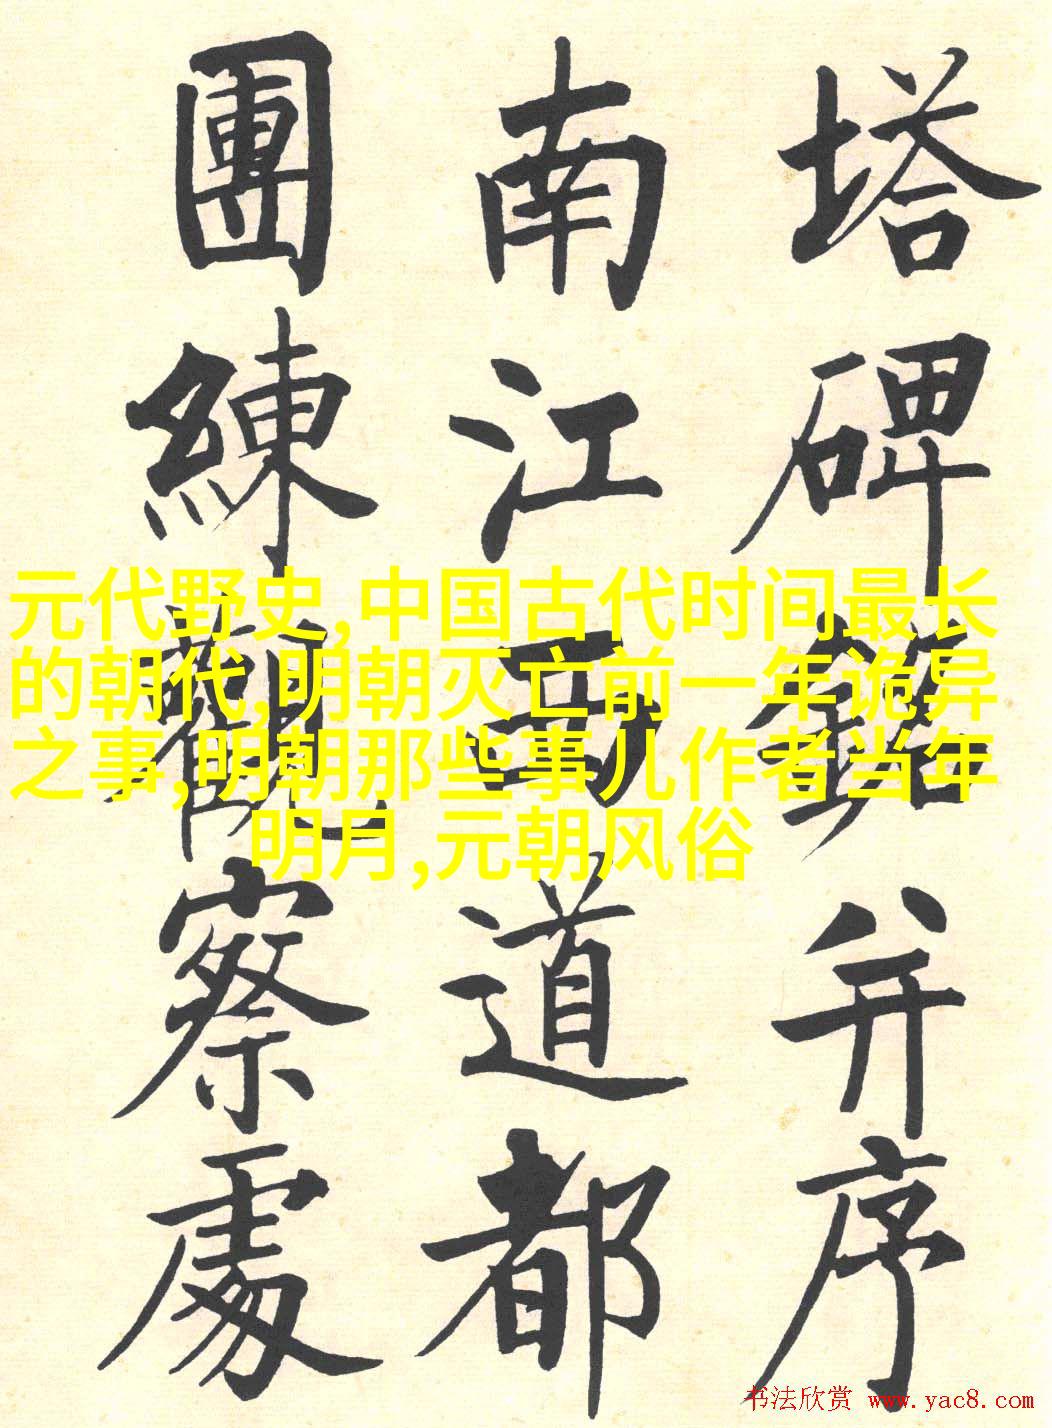 塔碑銘并序
南江西道都
團練觀察處
元代野史,中国古代时间最长
的朝代,明朝灭亡前一年诡异
之事,明朝那些事儿作者当年
明月,元朝风俗
书法欣赏 www.yac8.com